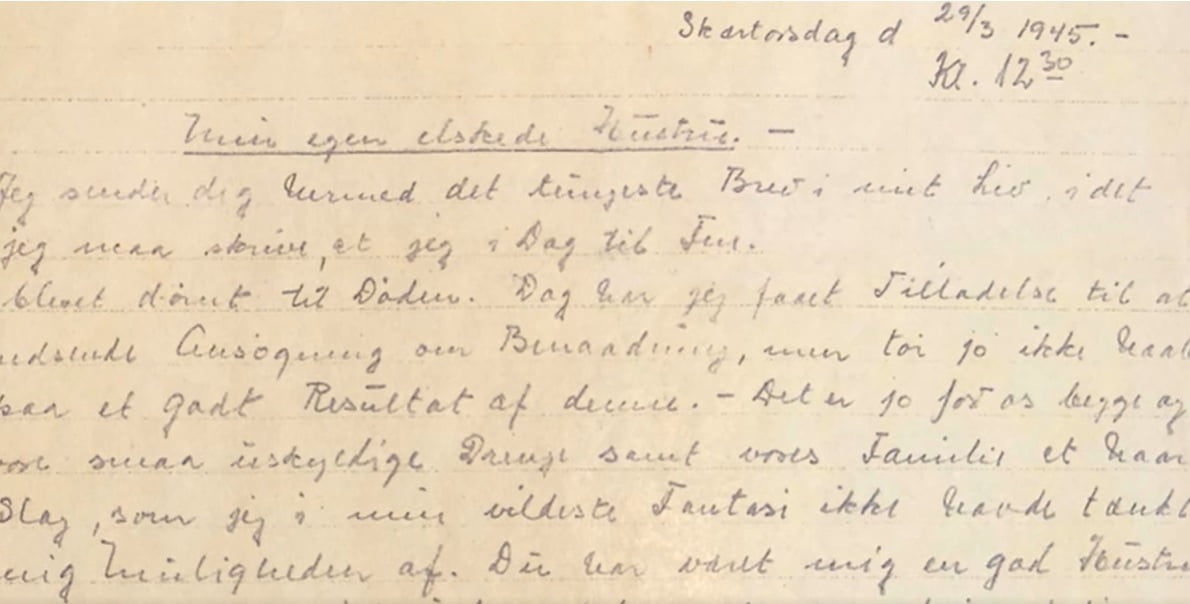 Skærtorsdag d 29/3 1945. -
Kl. 12 30
Min egen elskede Hustru. -
Jeg sender dig hermed det tungeste Brev i mit Liv, idet
jeg maa skrive, at jeg i Dag til Fur.
blevet dømt til Døden. Dog har jeg faaet Tilladelse til at
indsende Ansøgning om Benaadning, men tør jo ikke haab
paa et godt Resultat af denne. - Det er jo for os begge og
vore smaa uskyldige Drenge samt vores Familie et haar
Slag, som jeg i min vildeste Fantasi ikke havde tænkt
mig Muligheden af. Du har været mig en god Hustru